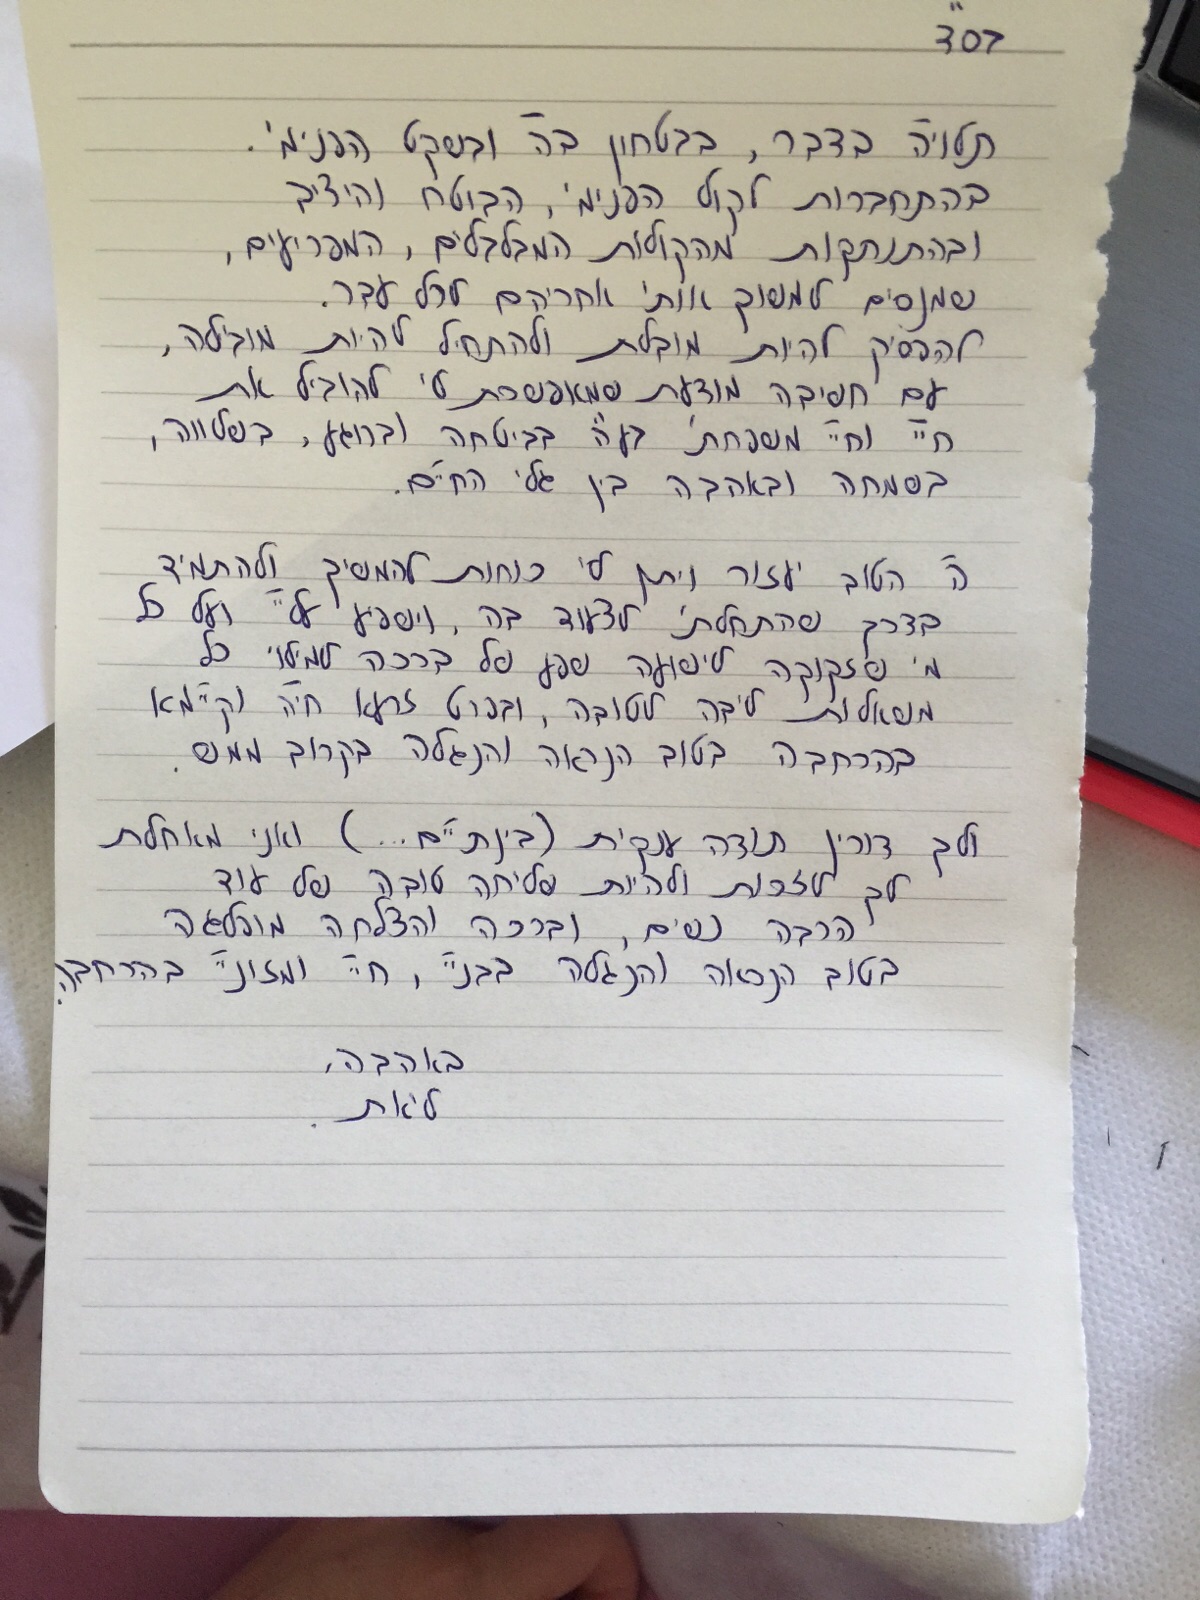 בס"ד
תלויה בדבר, בבטחון בה' ובשקט הפנימי.
בהתחברות לקול הפנימי, הבוטח והיציב
ובהתנתקות מהקולות המבלבלים, המפריעים,
שמנסים למשוך אותי אחריהם לכל עבר.
להפסיק להיות מובלת ולהתחיל להיות מובילה,
עם חשיבה מודעת שמאפשרת לי להוביל את
חיי וחיי משפחתי בע"ה בביטחה וברוגע, בשלווה,
בשמחה ובאהבה בין גלי החיים.
ה' הטוב יעזור ויתן לי כוחות להמשיך ולהתמיד
בדרך שהתחלתי לצעוד בה, וישפיע עליי ועל כל
מי שזקוקה לישועה שפע של ברכה למילוי כל
משאלות ליבה לטובה, ובפרט זרעא חיה וקיימא
בהרחבה בטוב הנראה והנגלה בקרוב ממש.
ולך דורין תודה ענקית (בינתיים...) ואני מאחלת
לך לזכות ולהיות שליחה טובה של עוד
הרבה נשים, וברכה והצלחה מופלגה
בטוב הנראה והנגלה בבניי, חיי ומזוניי בהרחבה.
באהבה,
ליאת.